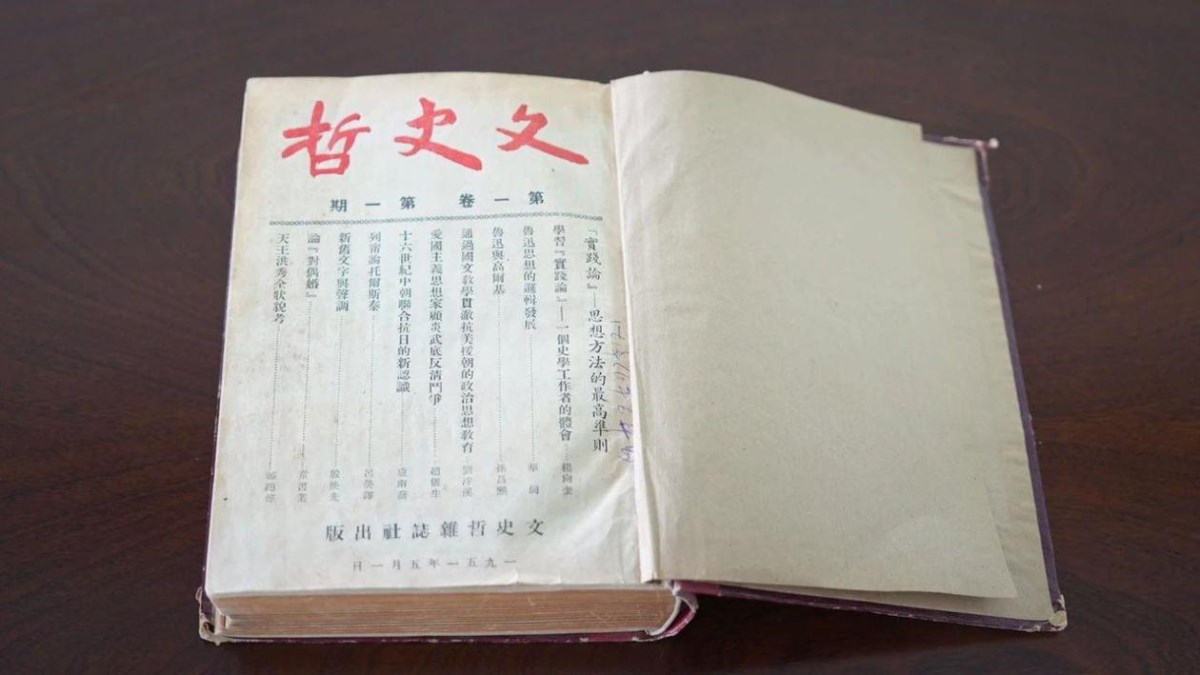 文史哲
第一卷 第一期
「實踐論」—思想方法的最高準則
學習『實踐論』——一個史學工作者的體會……楊向奎
魯迅思想的邏輯發展……華崗
魯迅與高爾基……孫昌熙
通過國文教學貫澈抗美援朝的政治思想教育……劉泮溪
愛國主義思想家顧炎武底反清鬥爭……趙儷生
十六世紀中朝聯合抗日的新認識……盧南喬
列甯論托爾斯泰……呂熒譯
新舊文字與聲調……殷煥先
論『對偶婚』……童書業
天王洪秀全狀貌考……鄭鶴聲
文史哲雜誌社出版
一九五一年五月一日